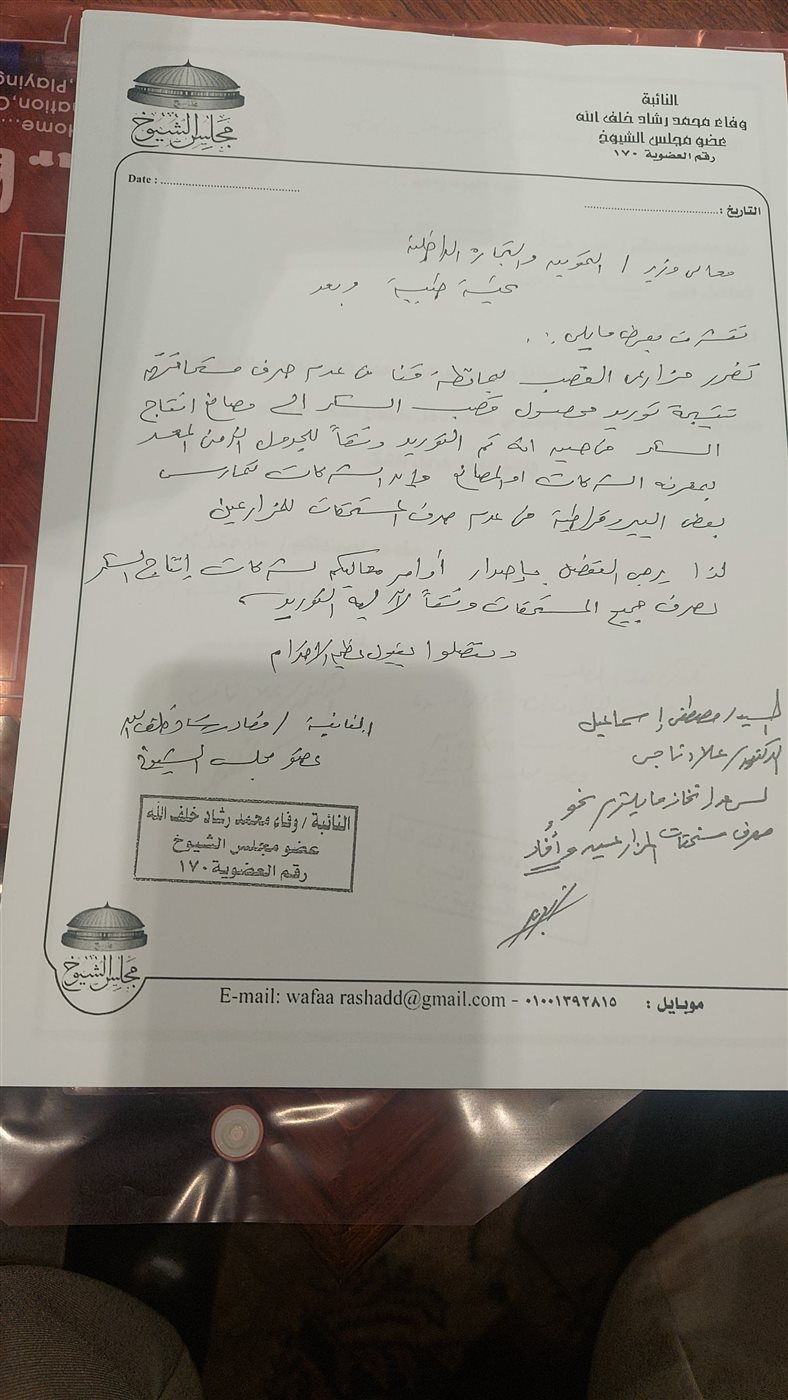 Playing,
nation,C
Home...
النائبة
وفاء محمد رشاد خلف الله
عضو مجلس الشيوخ
رقم العضوية ١٧٠
مجلس الشيوخ
Date :
التاريخ :
معالى وزير / التموين والتجارة الداخلية
تحية طيبة وبعد
نتشرف بعرض مايلى :.
تضرر مزارعى القصب بمحافظة قنا من عدم صرف مستحقاتهم
نتيجة توريد محصول قصب السكر الى مصانع انتاج
السكر من حيث انه تم التوريد وفقاً للجدول الزمن المعد
بمعرفة الشركات او المصانع وان الشركات تمارس
بعض البيروقراطية من عدم صرف المستحقات للمزارعين
لذا يرجى التفضل بإصدار أوامر معاليكم لشركات إنتاج السكر
لصرف جميع المستحقات وفقاً لآلية التوريد
وتفضلوا بقبول عظيم الاحترام
النائبة / وفاء رشاد خلف الله
عضو مجلس الشيوخ
السيد/ مصطفى إسماعيل
الدكتور/ علاء ناجى
لسرعة اتخاذ مايلزم نحو
صرف مستحقات المزارعين وأفاد
النائبة / وفاء محمد رشاد خلف الله
عضو مجلس الشيوخ
رقم العضوية ١٧٠
مجلس الشيوخ
موبايل : ٠١٠٠١٣٩٢٨١٥ - E-mail: wafaa rashadd@gmail.com